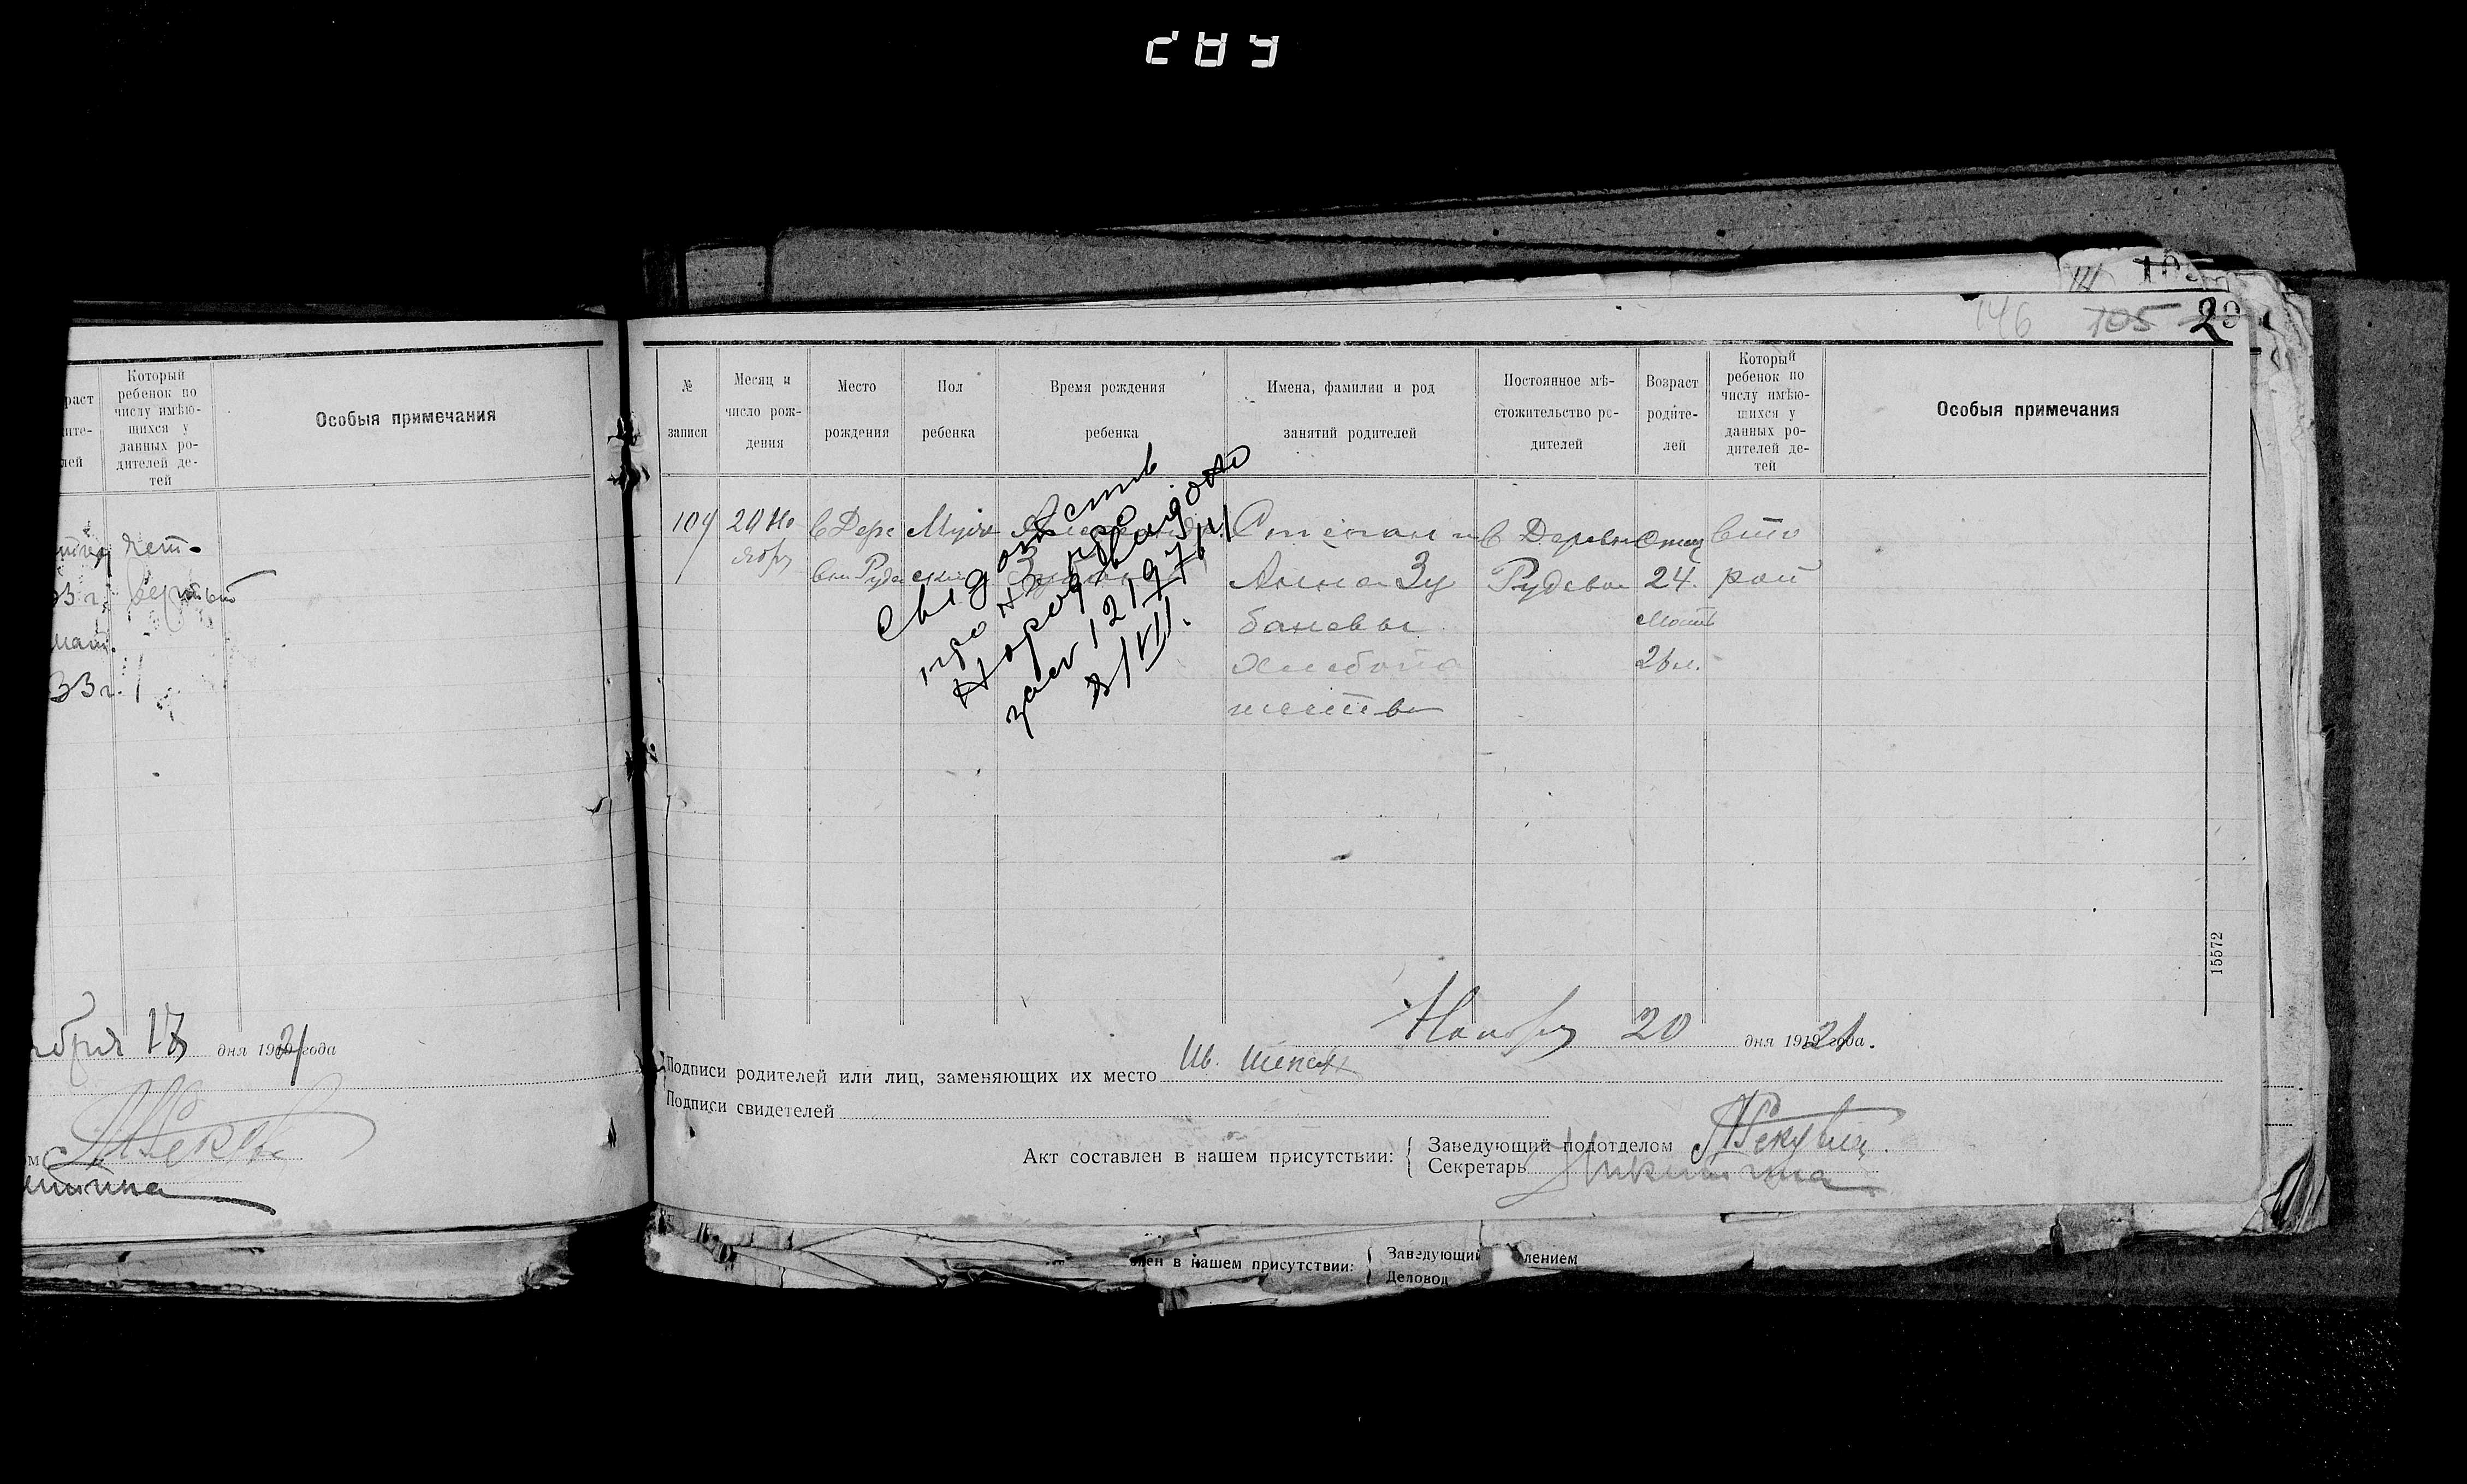 раст
ите-
лей
Который
ребенок по
числу имѣю-
щихся у
данных ро-
дителей де-
тей
Особыя примечания
чет-
вертый
33 г.
мат.
33 г.
ября 18 дня 1921 года
146 105 29
№
записи
Месяц и
число рож-
дения
Место
рождения
Пол
ребенка
Время рождения
ребенка
Имена, фамилии и род
занятий родителей
Постоянное мѣ-
стожительство ро-
дителей
Возраст
родите-
лей
Который
ребенок по
числу имѣю-
щихся у
данных ро-
дителей де-
тей
Особыя примечания
104 20 Но
ября
в Дере
вни Рудо
Мужс
ский
Степан и
Анна Зу
бановы
хлебопа
шество
в Деревни
Рудевои
Отец
24.
Мать
26 л.
вто
рои
Свідоцтв
про
народження
1219
3/VII.
15572
Ноября 20 дня 1921 года.
Подписи родителей или лиц, заменяющих их место Ив.
Подписи свидетелей
Акт составлен в нашем присутствии:
Заведующий подотделом
Секретарь Никитина
лен в нашем присутствии:
Заведующий лением
Деловод